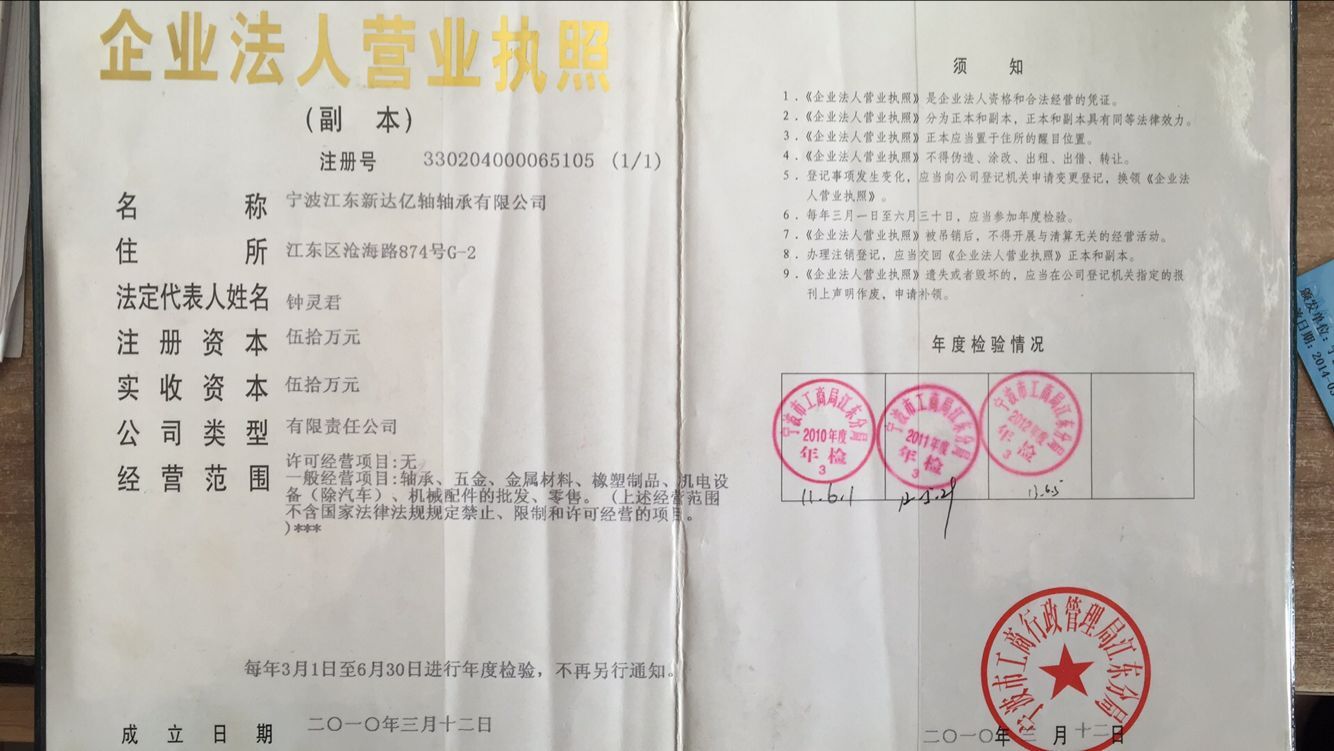 企业法人营业执照
(副 本)
注册号 330204000065105 (1/1)
名 称 宁波江东新达亿轴轴承有限公司
住 所 江东区沧海路874号G-2
法定代表人姓名 钟灵君
注册资本 伍拾万元
实收资本 伍拾万元
公司类型 有限责任公司
经营范围 许可经营项目:无
一般经营项目:轴承、五金、金属材料、橡塑制品、机电设
备（除汽车）、机械配件的批发、零售。（上述经营范围
不含国家法律法规规定禁止、限制和许可经营的项目。
)***
每年3月1日至6月30日进行年度检验，不再另行通知。
成立日期 二〇一〇年三月十二日
须 知
1．《企业法人营业执照》是企业法人资格和合法经营的凭证。
2．《企业法人营业执照》分为正本和副本，正本和副本具有同等法律效力。
3．《企业法人营业执照》正本应当置于住所的醒目位置。
4．《企业法人营业执照》不得伪造、涂改、出租、出借、转让。
5．登记事项发生变化，应当向公司登记机关申请变更登记，换领《企业法
人营业执照》。
6．每年三月一日至六月三十日，应当参加年度检验。
7．《企业法人营业执照》被吊销后，不得开展与清算无关的经营活动。
8．办理注销登记，应当交回《企业法人营业执照》正本和副本。
9．《企业法人营业执照》遗失或者毁坏的，应当在公司登记机关指定的报
刊上声明作废，申请补领。
年度检验情况
宁波市工商局江东分局
2010年度
年检
3
宁波市工商局江东分局
2011年度
年检
3
宁波市工商局江东分局
2012年度
年检
3
11.6.1
12.5.29
13.6.5
宁波市工商行政管理局江东分局
二〇一〇年三月十二日
颁发单位：
日期：2014-0